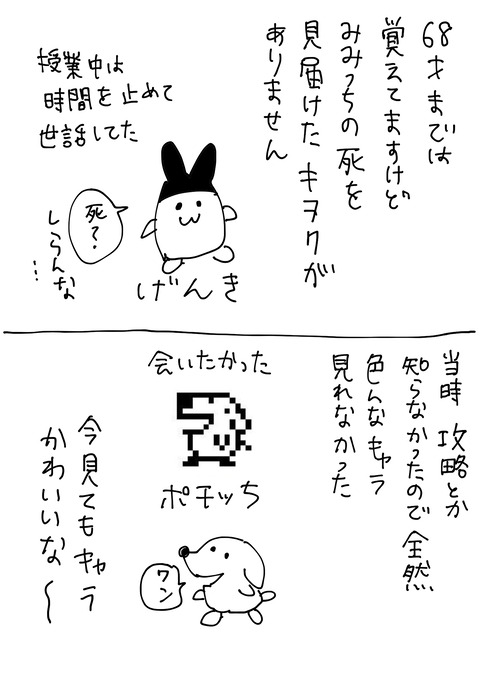 68才までは
覚えてますけど
みみっちの死を
見届けたキヲクが
ありません
授業中は
時間を止めて
世話してた
死？
しらんな…
げんき
当時 攻略とか
知らなかったので全然
色んなキャラ
見れなかった
会いたかった
ポチッち
ワン
今見てもキャラ
かわいいな〜